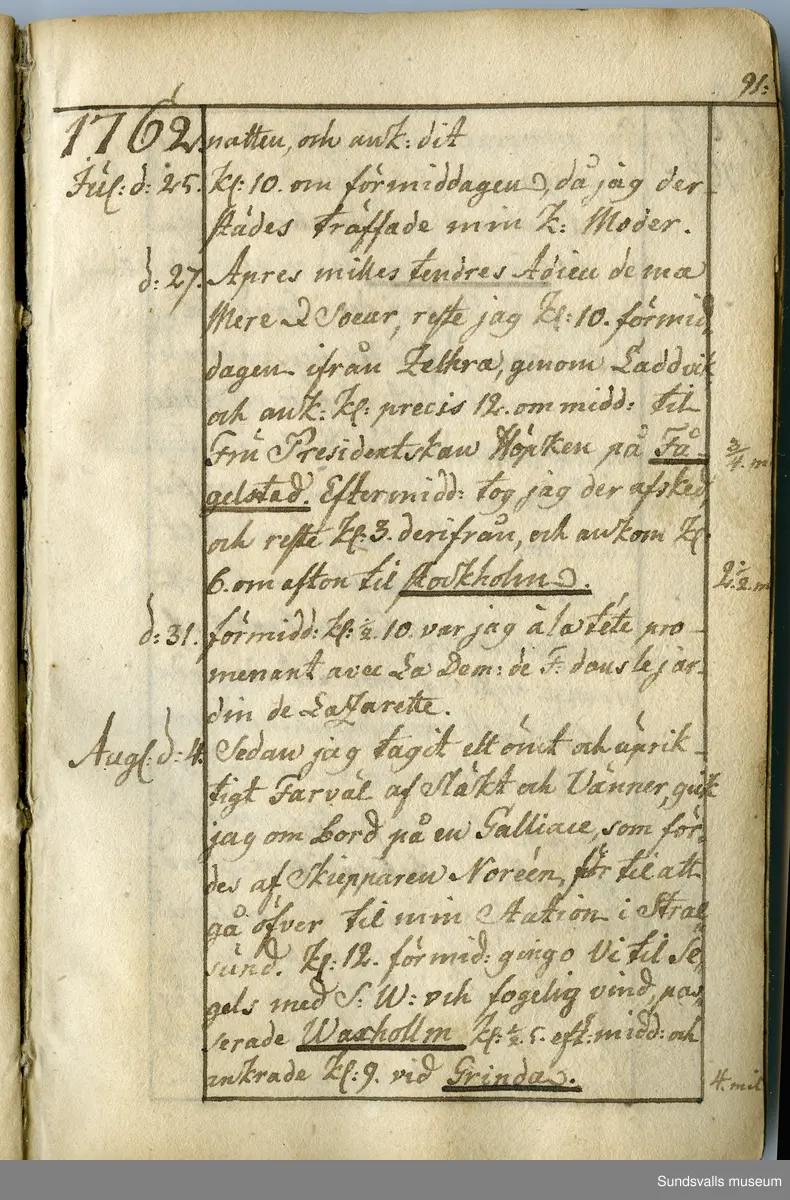 91:
1762. natten, och ank: dit
Jul: d: 25. Kl: 10. om förmiddagen, då jag der-
städes träffade min K: Moder.
d: 27. Apres milles tendres Adieu de ma
Mere & Soeur, reste jag Kl: 10. förmid-
dagen ifrån Zelkra, genom Laddvik
och ank: Kl: precis 12. om midd: til
Fru Presidentskan Höpken på Få- 3/4. m
gelstad. Eftermidd: tog jag der afsked,
och reste Kl: 3. derifrån, och ankom Kl:
6. om afton til Stockholm. 2 1/2. m
d: 31. förmidd: Kl: 1/2. 10. var jag à la téte pro-
menant avec La Dem: de F: dans le jar-
din de Lazarette.
Aug: d: 4. Sedan jag tagit ett ömt och uprik-
tigt Farväl af Släkt och Vänner, gick
jag om Bord på en Galliace, som för-
des af Skepparen Noréen, för til att
gå öfver til min Station i Stral-
sund. Kl: 12. förmid: gingo Vi til Se-
gels med S: W: och fogelig vind, pas-
serade Waxhollm Kl: 1/2. 5. eft: midd: och
ankrade Kl: 9. vid Grinda. 4. mil
Sundsvalls museum